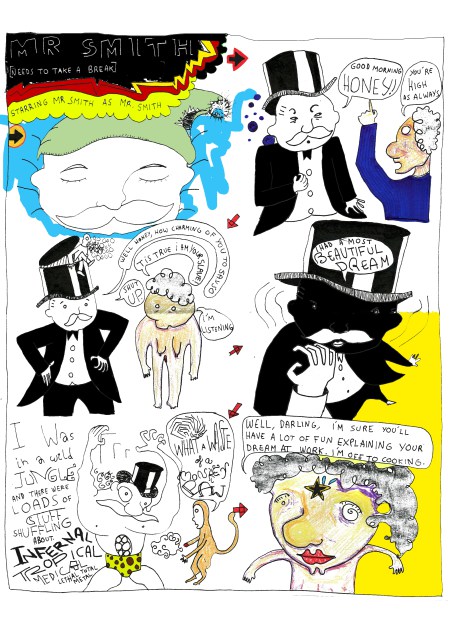 MR SMITH
[NEEDS TO TAKE A BREAK]
STARRING MR SMITH AS MR. SMITH
GOOD MORNING
HONEY!)
YOU'RE
HIGH
AS ALWAYS
WELL HONEY, HOW CHARMING OF YOU TO SAY SO
TIS TRUE I AM YOUR SLAVE!
SHUT
UP
I'M
LISTENING
I HAD A MOST
BEAUTIFUL
DREAM
I WAS
in a wild
JUNGLE
AND THERE WERE
LOADS OF
STUFF
SHUFFLING
ABOUT.
INFERNAL
TROPICAL
MEDICAL
LETHAL TOTAL
METAL
WHAT A WASTE
of a
MONKEY'S
WELL, DARLING, I'M SURE YOU'LL
HAVE A LOT OF FUN EXPLAINING YOUR
DREAM AT WORK. I'M OFF TO COOKING.